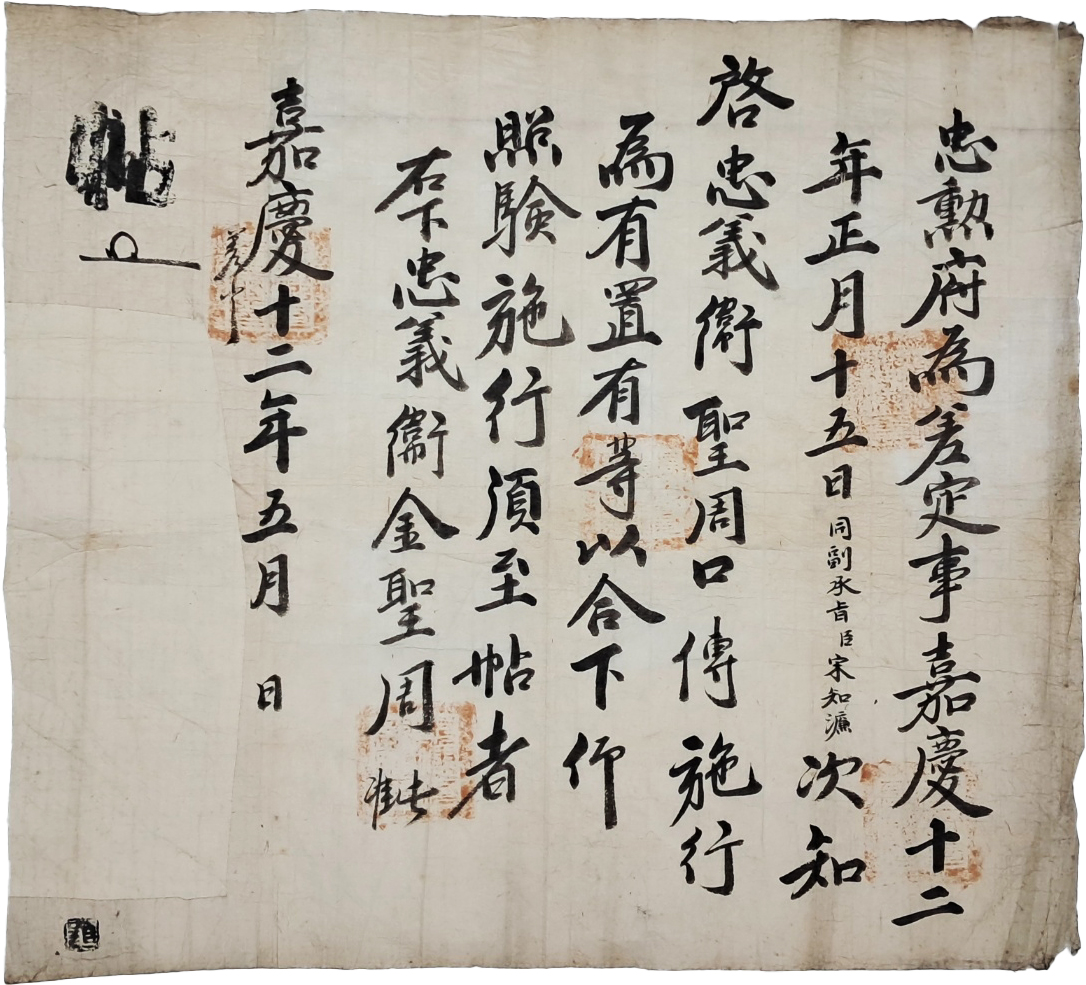 忠勳府為差定事嘉慶十二
年正月十五日同副承旨臣宋知濂次知
啓忠義衛聖周口傳施行
為有置有等以合下仰
照驗施行須至帖者
右下忠義衛金聖周 准此
嘉慶十二年五月 日
差定
帖